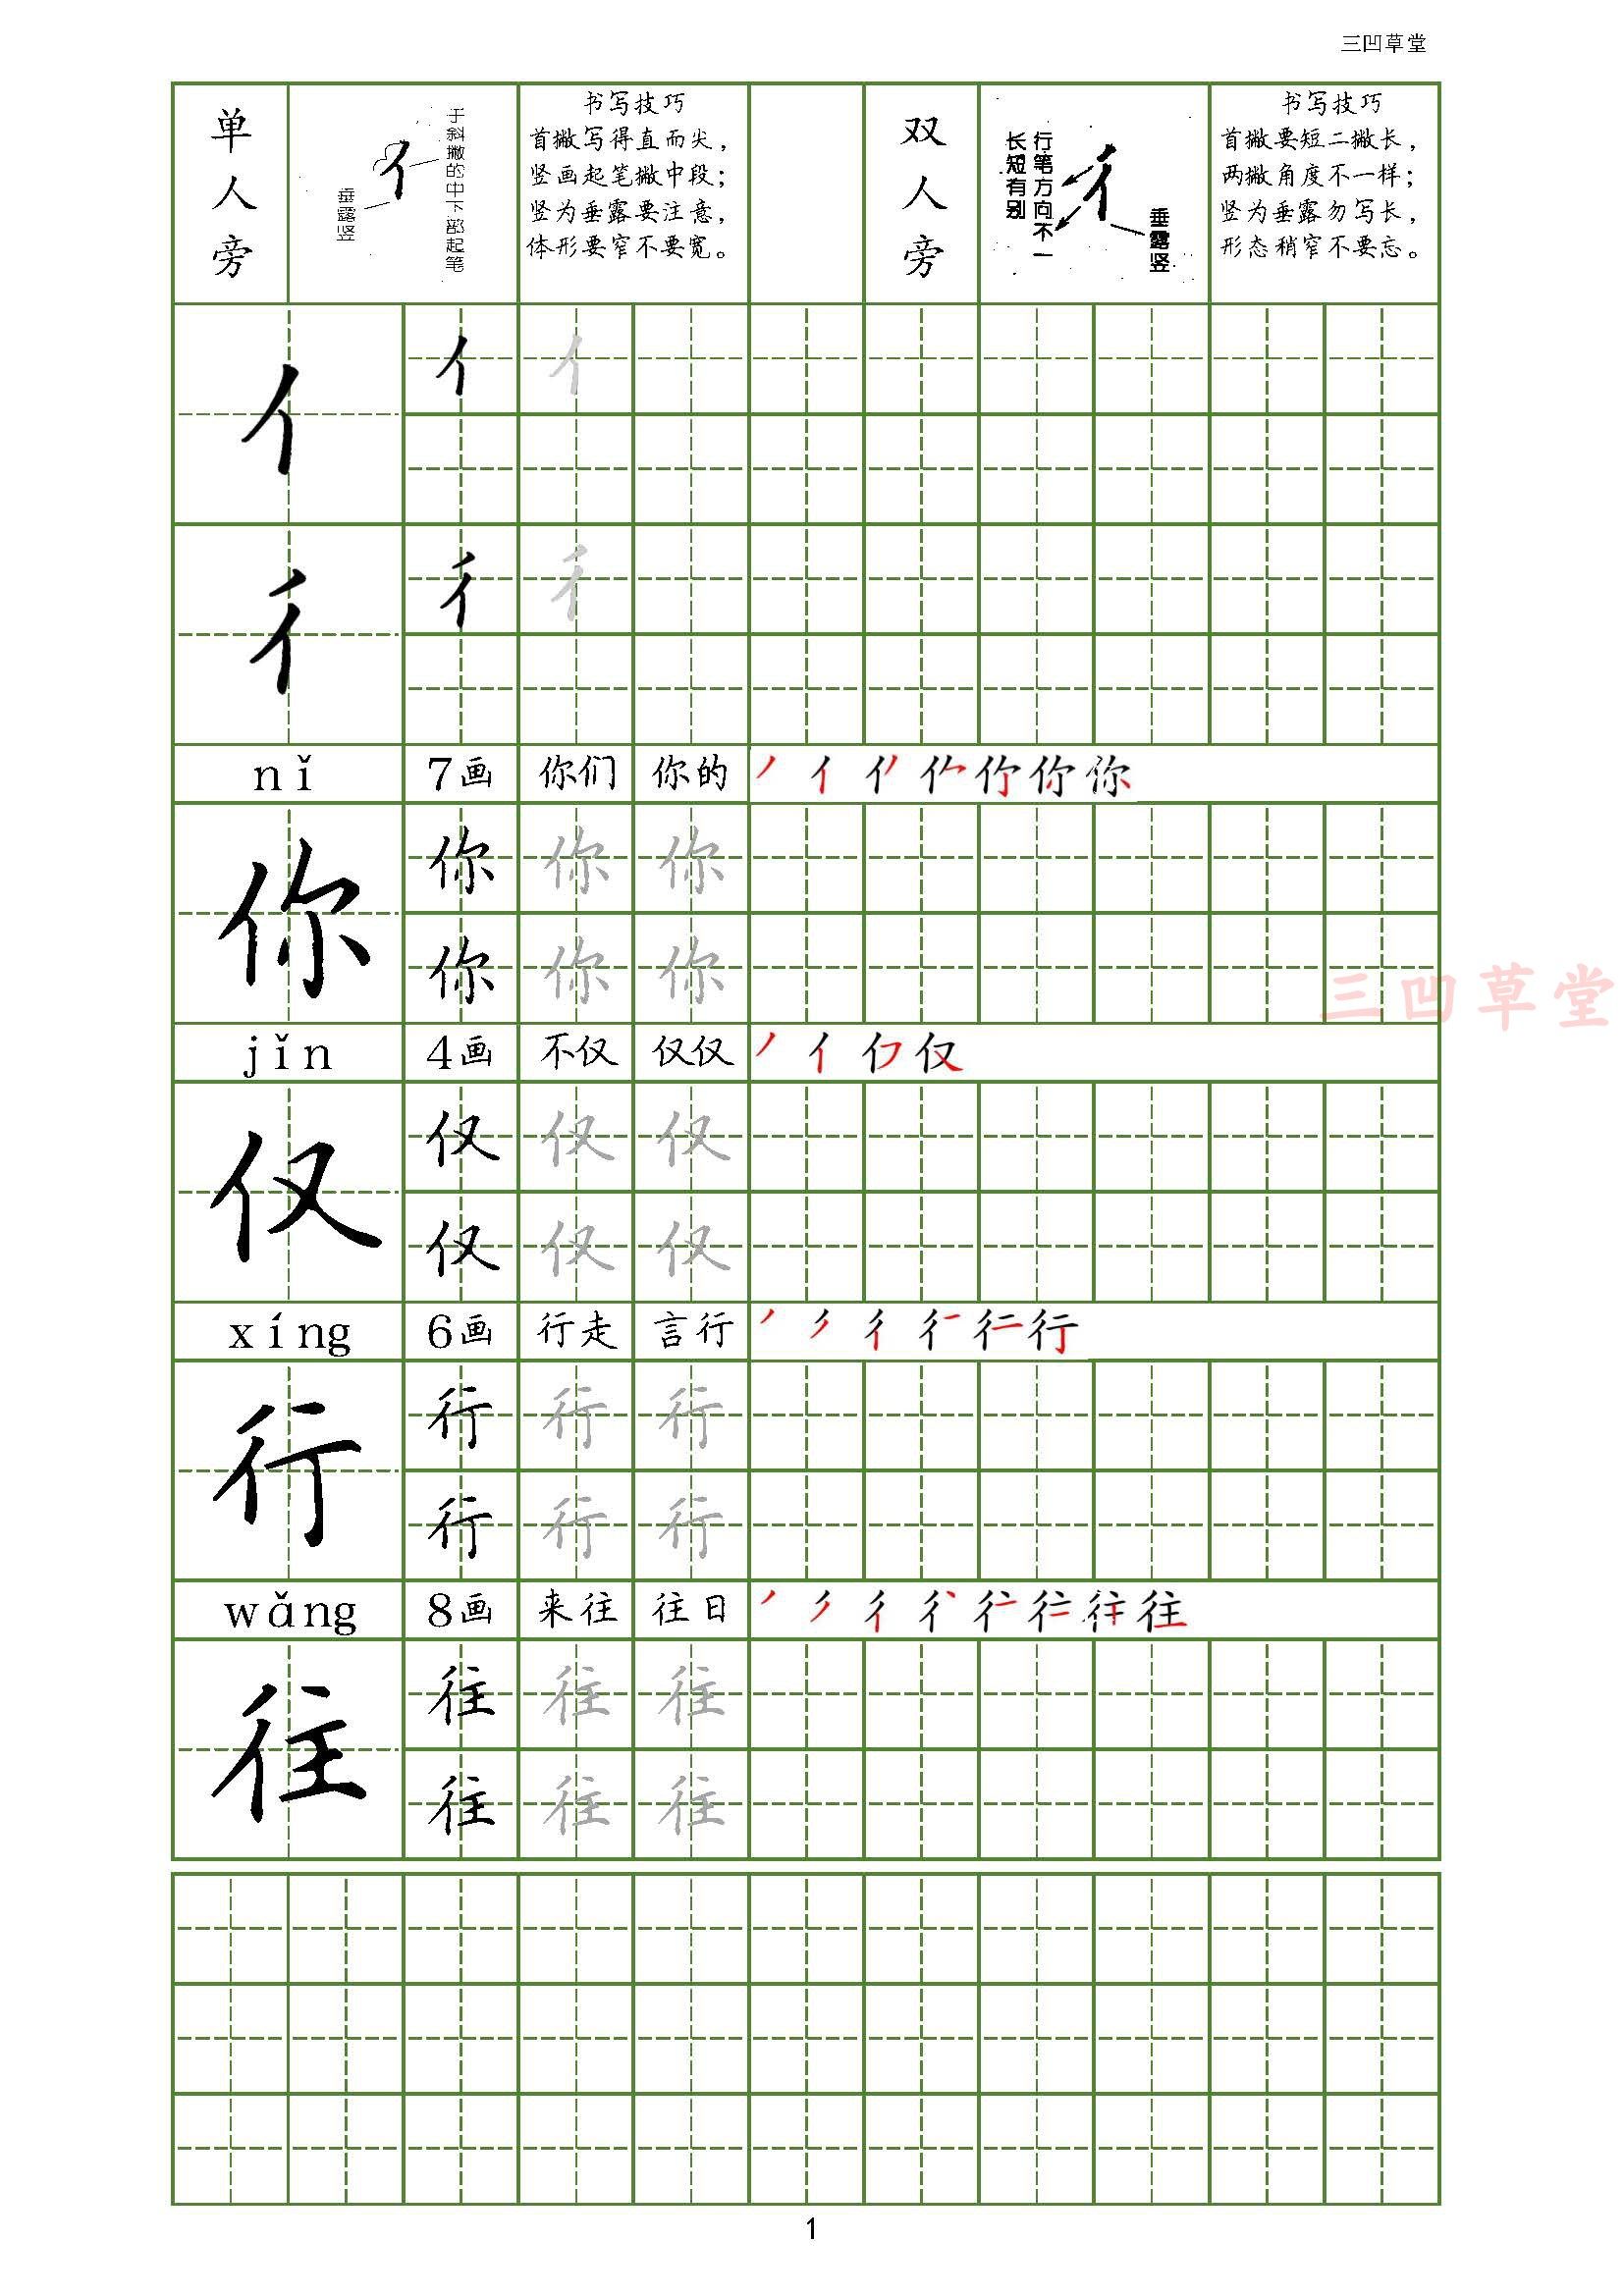 三凹草堂
单人旁
于斜撇的中下部起笔
垂露竖
书写技巧
首撇写得直而尖，
竖画起笔撇中段；
竖为垂露要注意，
体形要窄不要宽。
双人旁
行笔方向不一
长短有别
垂露竖
书写技巧
首撇要短二撇长，
两撇角度不一样；
竖为垂露勿写长，
形态稍窄不要忘。
亻 亻 亻
彳 彳 彳
nǐ 7画 你们 你的
你 你 你 你
你 你 你
三凹草堂
jǐn 4画 不仅 仅仅
仅 仅 仅 仅
仅 仅 仅
xíng 6画 行走 言行
行 行 行 行
行 行 行
wǎng 8画 来往 往日
往 往 往 往
往 往 往
1